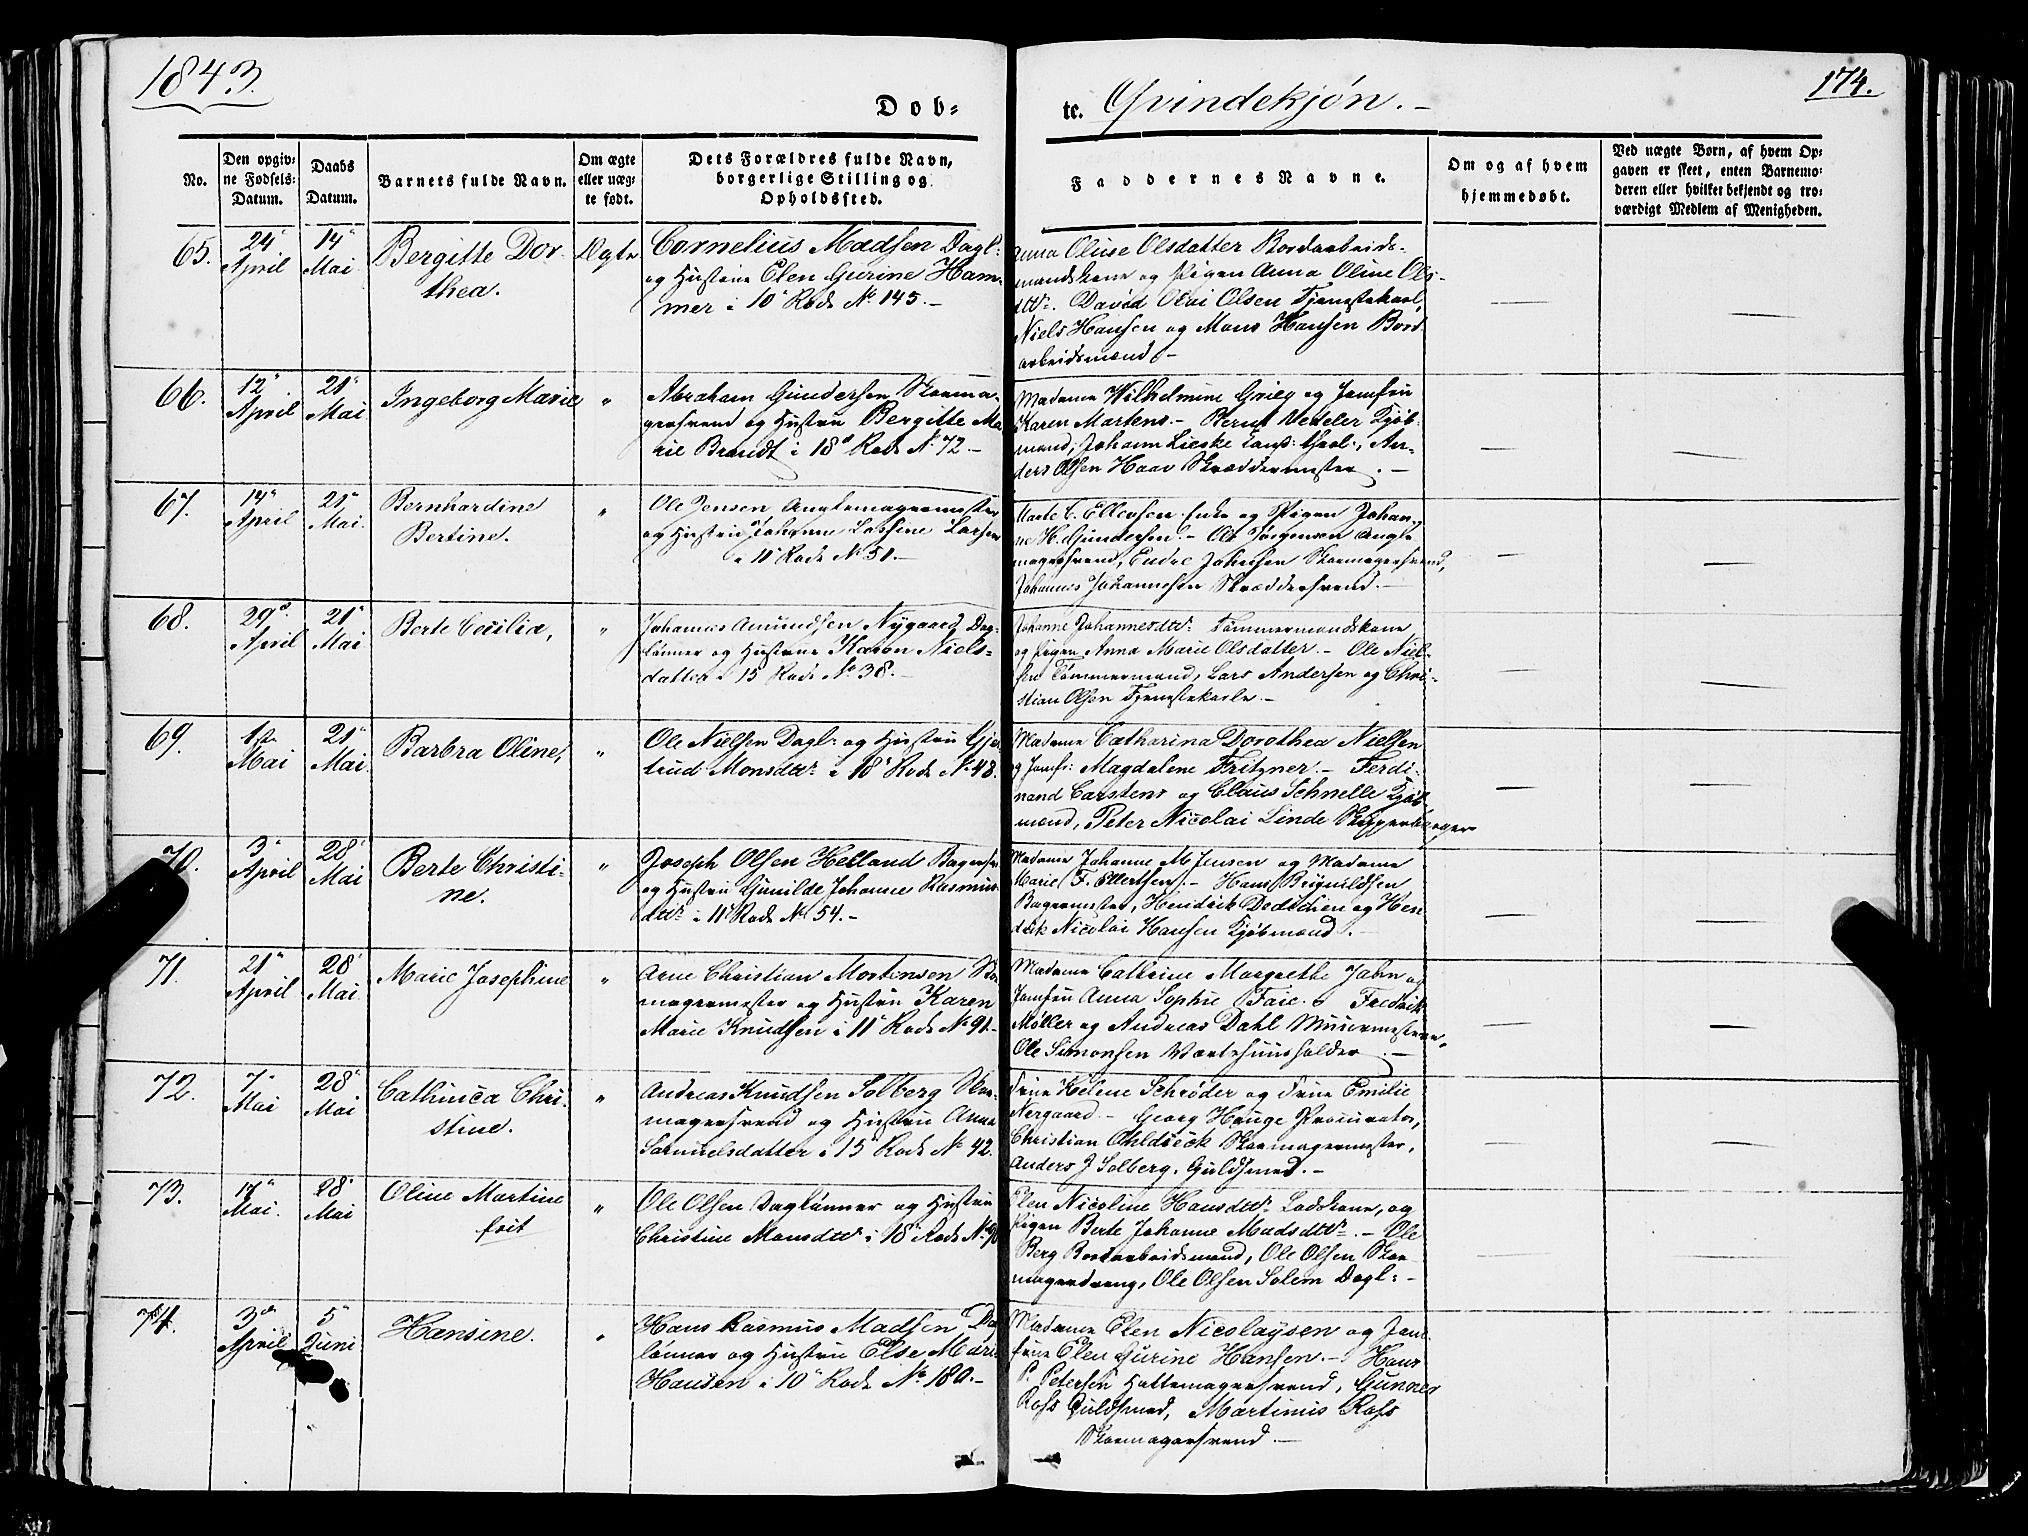 1843.
Dob-
te. Qvindekjøn.-
174.
No.
Den opgiv-
ne Fødsels-
Datum.
Daabs
Datum.
Barnets fulde Navn.
Om ægte
eller uæg-
te født.
Dets Forældres fulde Navn,
borgerlige Stilling og
Opholdssted.
Faddernes Navne.
Om og af hvem
hjemmedøbt.
Ved uægte Børn, af hvem Op-
gaven er skeet, enten Barnemo-
deren eller hvilket bekjendt og tro-
værdigt Medlem af Menigheden.
65.
24
April
14
Mai
Bergitte Dor-
thea.
Ægte
Cornelius Madsen Dagl:
og Hustrue Elen Gurine Ham-
mer i 10 Rode No 145.-
Anna Oluse Olsdatter Bordarbeids-
mandskone og Pigen Anna Oline Ols-
dtr. David Olai Olsen Tjenestekarl,
Niels Hansen og Mons Hansen Bord-
arbeidsmænd.-
66.
12
April
21
Mai
Ingeborg Marie
"
Abraham Gundersen Skoma-
gersvend og Hustru Bergitte Ma-
rie Brandt i 18 Rode No 72.-
Madame Wilhelmine Grieg og Jomfru
Karen Martens.- Bernt Vedeler Kjøb-
mand, Johann Lieske, An-
ders Olsen Haav Skræddermester.-
67.
14
April
21
Mai
Bernhardine
Bertine.
"
Ole Jensen
og Hustru Johanne Larsen
i 11 Rode No 51.-
Marte C. Ellevsen Enke og Pigen Johan-
ne H. Gundersen.- Ole Jørgensen
magersvend, Endre Johnsen Skomagersvend,
Johannes Johannessen Skræddersvend.-
68.
29
April
21
Mai
Berte Cecilia,
"
Johannes Amundsen Nygaard Dag-
lønner og Hustrue Karen Niels-
datter i 15 Rode No 38.-
Johanne Johannesdtr. Tømmermandskone
og Pigen Anna Marie Olsdatter.- Ole Niel-
sen Tømmermand, Lars Andersen og Chri-
stian Olsen Tjenestekarle.-
69.
1ste
Mai
21
Mai
Barbra Oline,
"
Ole Nielsen Dagl: og Hustru Gjer-
trud Monsdtr. i 18 Rode No 48.
Madame Catharina Dorothea Nielsen
og Jomfr: Magdalene Fritzner.- Ferdi-
nand Carstens og Claus Schnelle Kjøb-
mænd, Peter Nicolai Linde Skipperborger
70.
3
April
28
Mai
Berte Christi-
ne.
"
Joseph Olsen Helland
og Hustru Gunilde Johanne Rasmus-
dtr i 11 Rode No 54.-
Madame Johanne M Jensen og Madame
Marie F. Ellertsen.- Hans
Bagermester, Hendrik og Hen-
drik Nicolai Hansen Kjøbmænd.-
71.
21
April
28
Mai
Marie Josephine
"
Arne Christian Mortensen Sko-
magermester og Hustru Karen
Marie Knudsen i 11 Rode No 91.-
Madame Cathrine Margrethe Jahn og
Jomfru Anna Sophie Faie.- Fredrik
Møller og Andreas Dahl Muurmestere,
Ole Simonsen Vertshuusholder.-
72.
7
Mai
28
Mai
Cathinca Chri-
stine.
"
Andreas Knudsen Solberg Sko-
magersvend og Hustru Anna
Samuelsdatter i 15 Rode No 42.
Frue Helene Schrøder og Frue Emilie
Nergaard.- Georg Hauge Procurator,
Christian Skomagermester,
Anders J Solberg, Guldsmed.-
73.
17
Mai.
28
Mai
Oline Martine
"
Ole Olsen Daglønner og Hustru
Christine Monsdtr i 18 Rode No 90
Elen Nicoline Hansdtr. Ladskone, og
Pigen Berte Johanne Madsdtr.- Ole
Berg Bordarbeidsmand, Ole Olsen Sko-
magerdreng, Ole Olsen Solem Dagl:-
74.
3
April
5
Juni
Hansine.
"
Hans Rasmus Madsen Dag-
lønner og Hustru Else Marie
Hansen i 10 Rode No 180.-
Madame Elen Nicolaysen og Jom-
frue Elen Gurine Hansen.- Hans
P. Petersen Hattemagersvend, Gunner
Ross Guldsmed, Martinus Ross
Skomagersvend.-